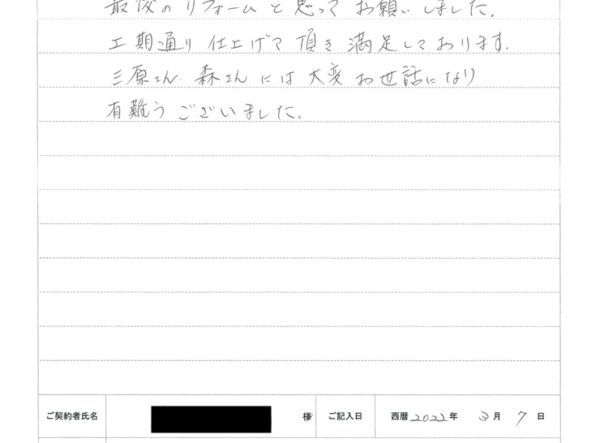 最後のリフォームと思ってお願いしました。
工期通り仕上げて頂き満足しております。
三原さん 森さんには大変お世話になり
有難うございました。
ご契約者氏名 様 ご記入日 西暦2022年 3月 7日